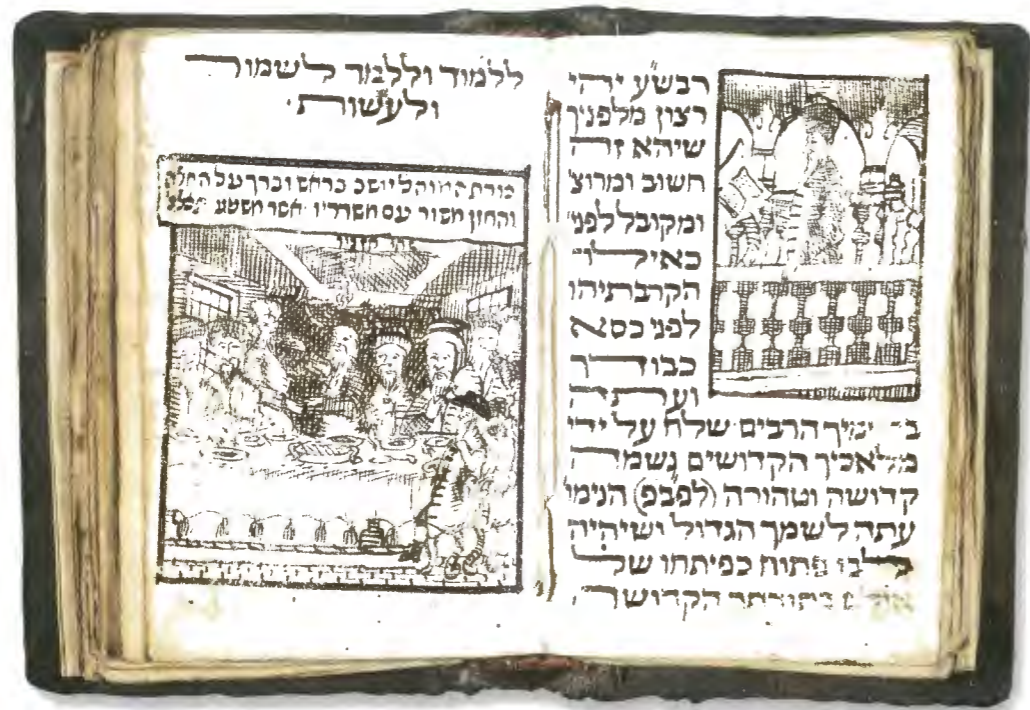 רבש״ע יהי
רצון מלפניך
שיהא זה
חשוב ומרוצ׳
ומקובל לפני׳
כאילו
הקרבתיהו
לפני כסא
כבודך
ואתה
הרבים שלח על ידי
מלאכיך הקדושים נשמה
קדושה וטהורה (לפב״פ) הנימו׳
עתה לשמך הגדול ושיהיה
פתוח כפיתחו של
הקדושה
ללמוד וללמד לשמור
ולעשות
המוהל יושב בראש וברך על
והחזן משורר עם משורריו אשר